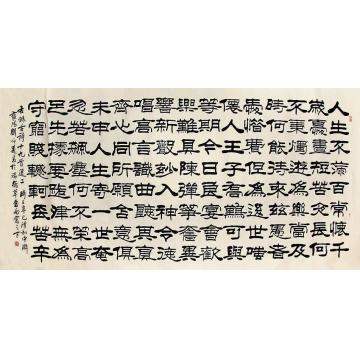 人生不滿百常懷千
歲憂晝短苦夜長何
不秉燭遊為樂當及
時何能待來茲愚者
愛惜費但為後世嗤
僊人王子喬難可與
等期今日良宴會歡
樂難具陳彈箏奮逸
響新聲妙入神令德
唱高言識曲聽其真
齊心同所願含意俱
未申人生寄一世奄
忽若飆塵何不策高
足先據要路津無為
守窮賤轗軻長苦辛
古詩十九首選二